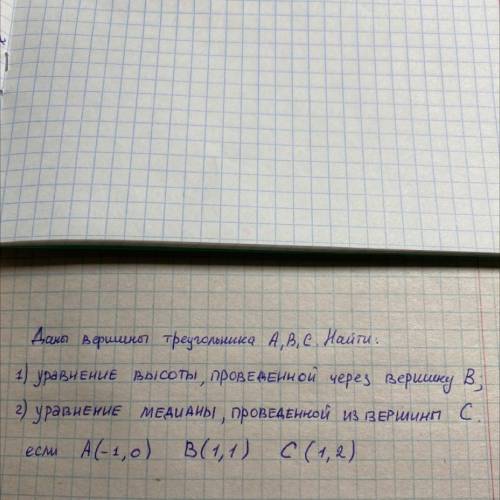 Даны вершины треугольника A, B, C. Найти:
1) уравнение высоты, проведенной через вершину B;
2) уравнение медианы, проведенной из вершины C.
если A(-1,0) B(1,1) C(1,2)